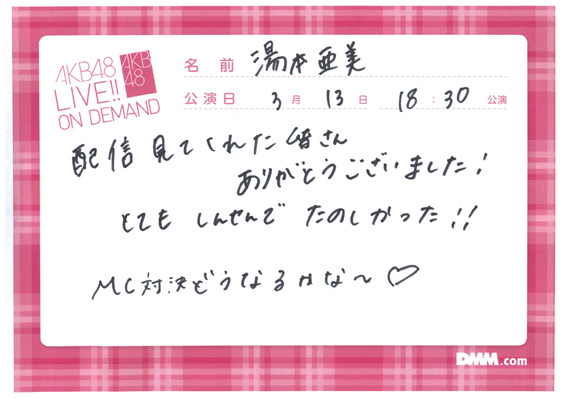 AKB48
LIVE!!
ON DEMAND
AKB
48
名前 湯本亜美
公演日 3月 13日 18:30 公演
配信見てくれた皆さん
ありがとうございました!
とても しんせんで たのしかった!!
MC対決どうなるかな〜♡
DMM.com